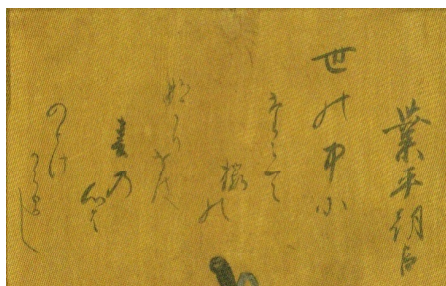 業平朝臣
世の中に
たえて
櫻の
なかりせは
春乃
心は
のとけ
からまし